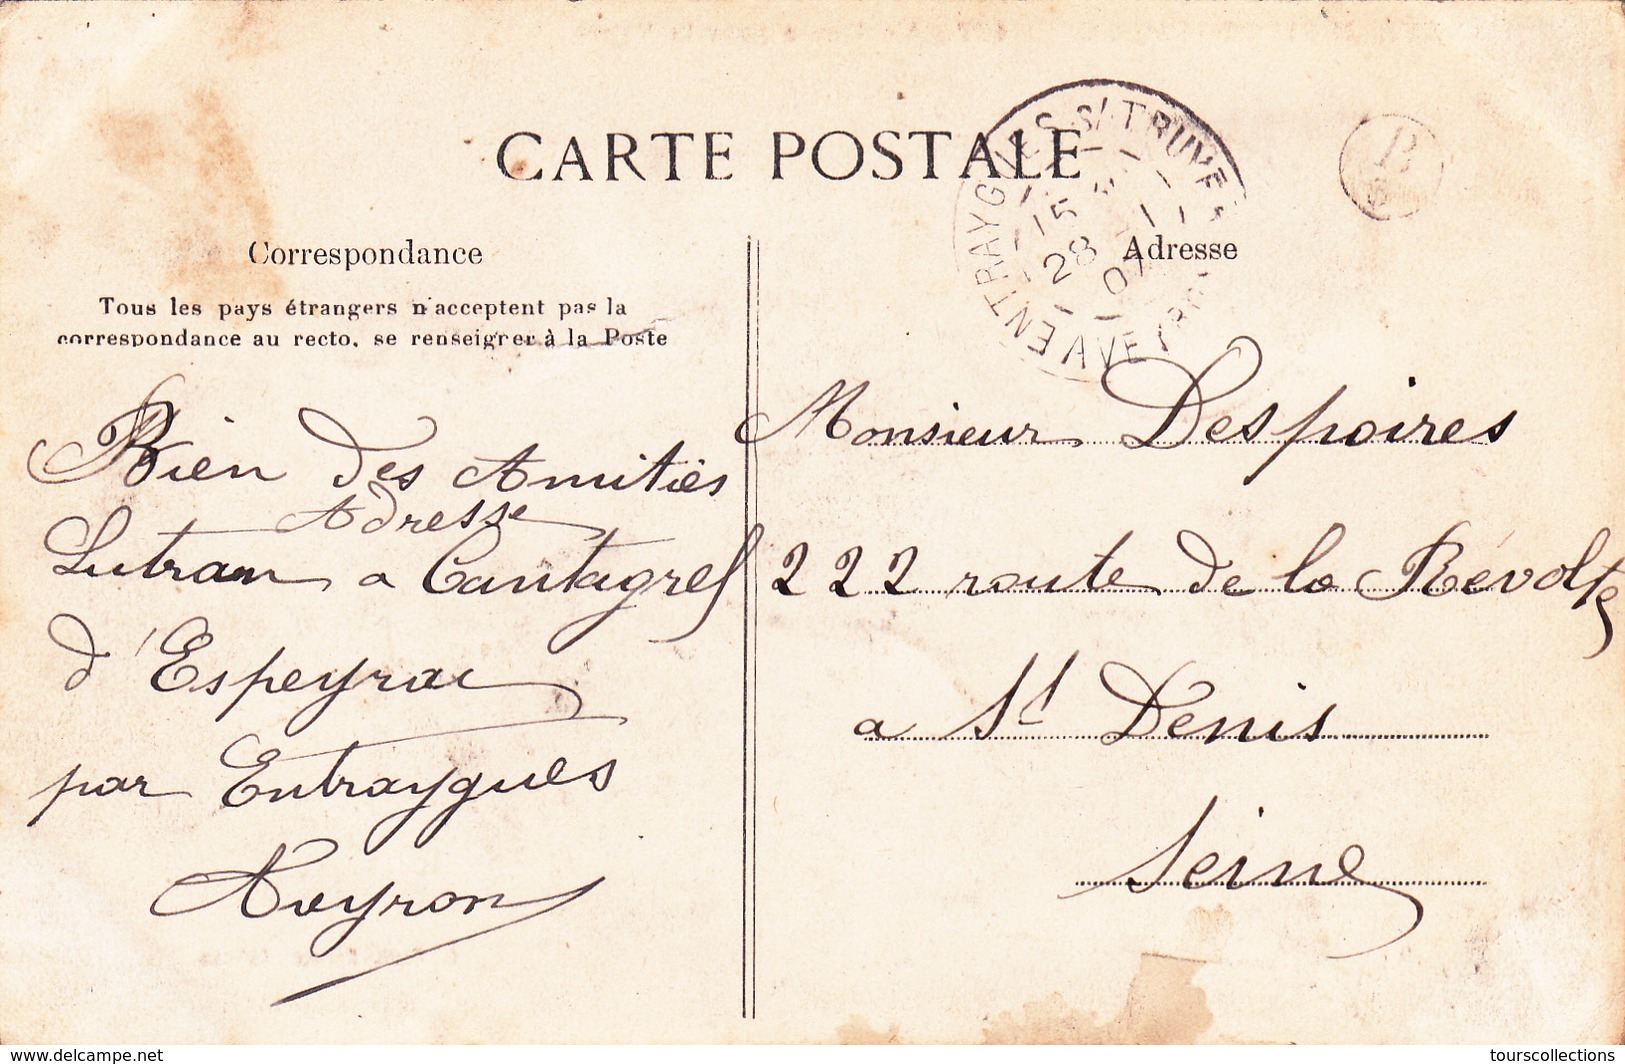 CARTE POSTALE
ENTRAYGUES-S/-TRUYÈ
15
28 - 1
07
AVEYRON
B
Correspondance
Tous les pays étrangers n'acceptent pas la
correspondance au recto, se renseigner à la Poste
Bien des Amitiés
Adresse
Lutran a Cantagrel
d'Espeyrac
par Entraygues
Aveyron
Adresse
Monsieur Despoires
222 route de la Révolte
a St Denis
Seine
www.delcampe.net
tourscollections